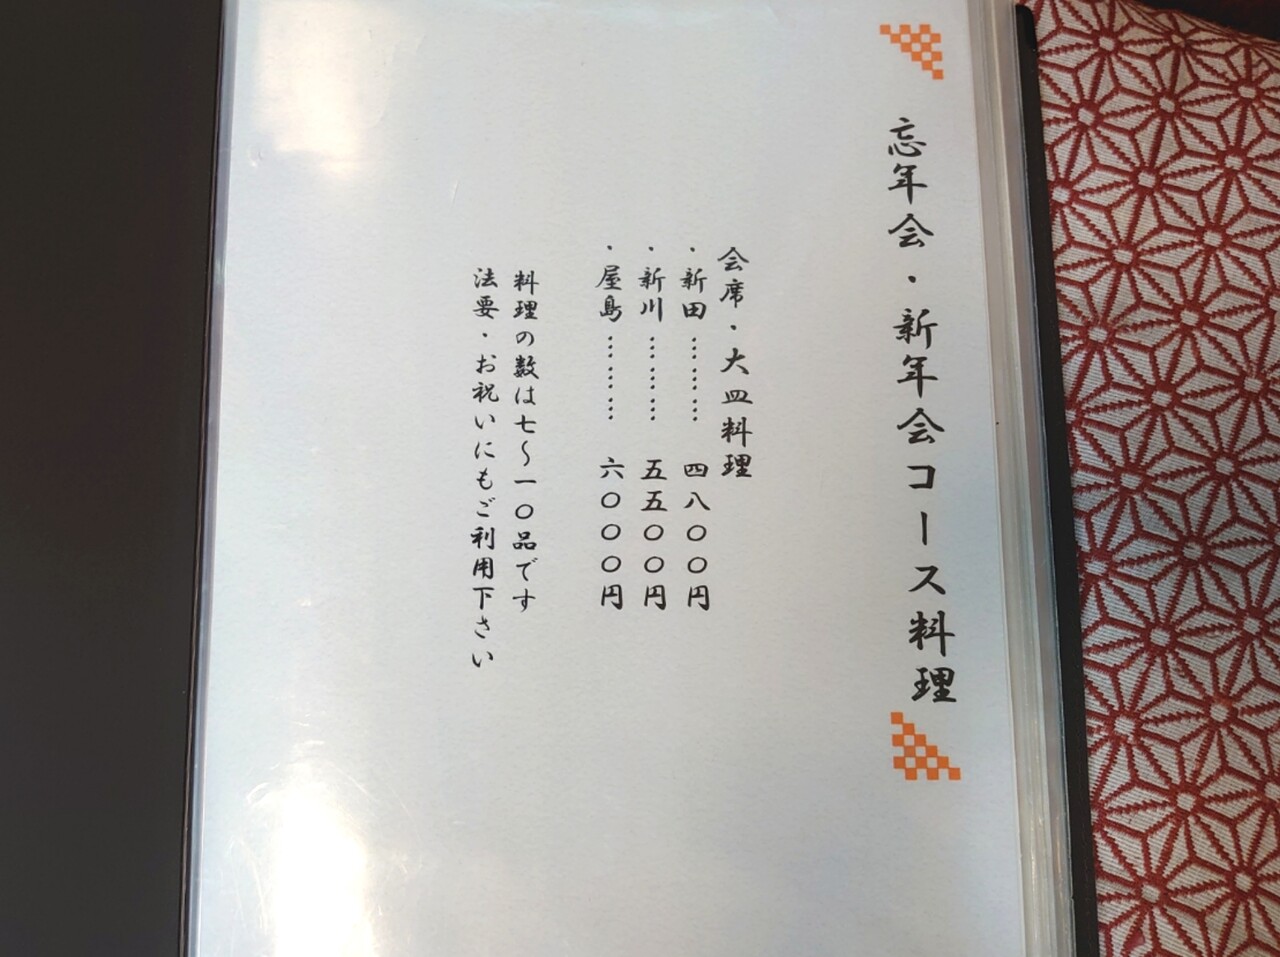 忘年会・新年会コース料理
会席・大皿料理
・新田……… 四八〇〇円
・新川……… 五五〇〇円
・屋島……… 六〇〇〇円
料理の数は七〜一〇品です
法要・お祝いにもご利用下さい